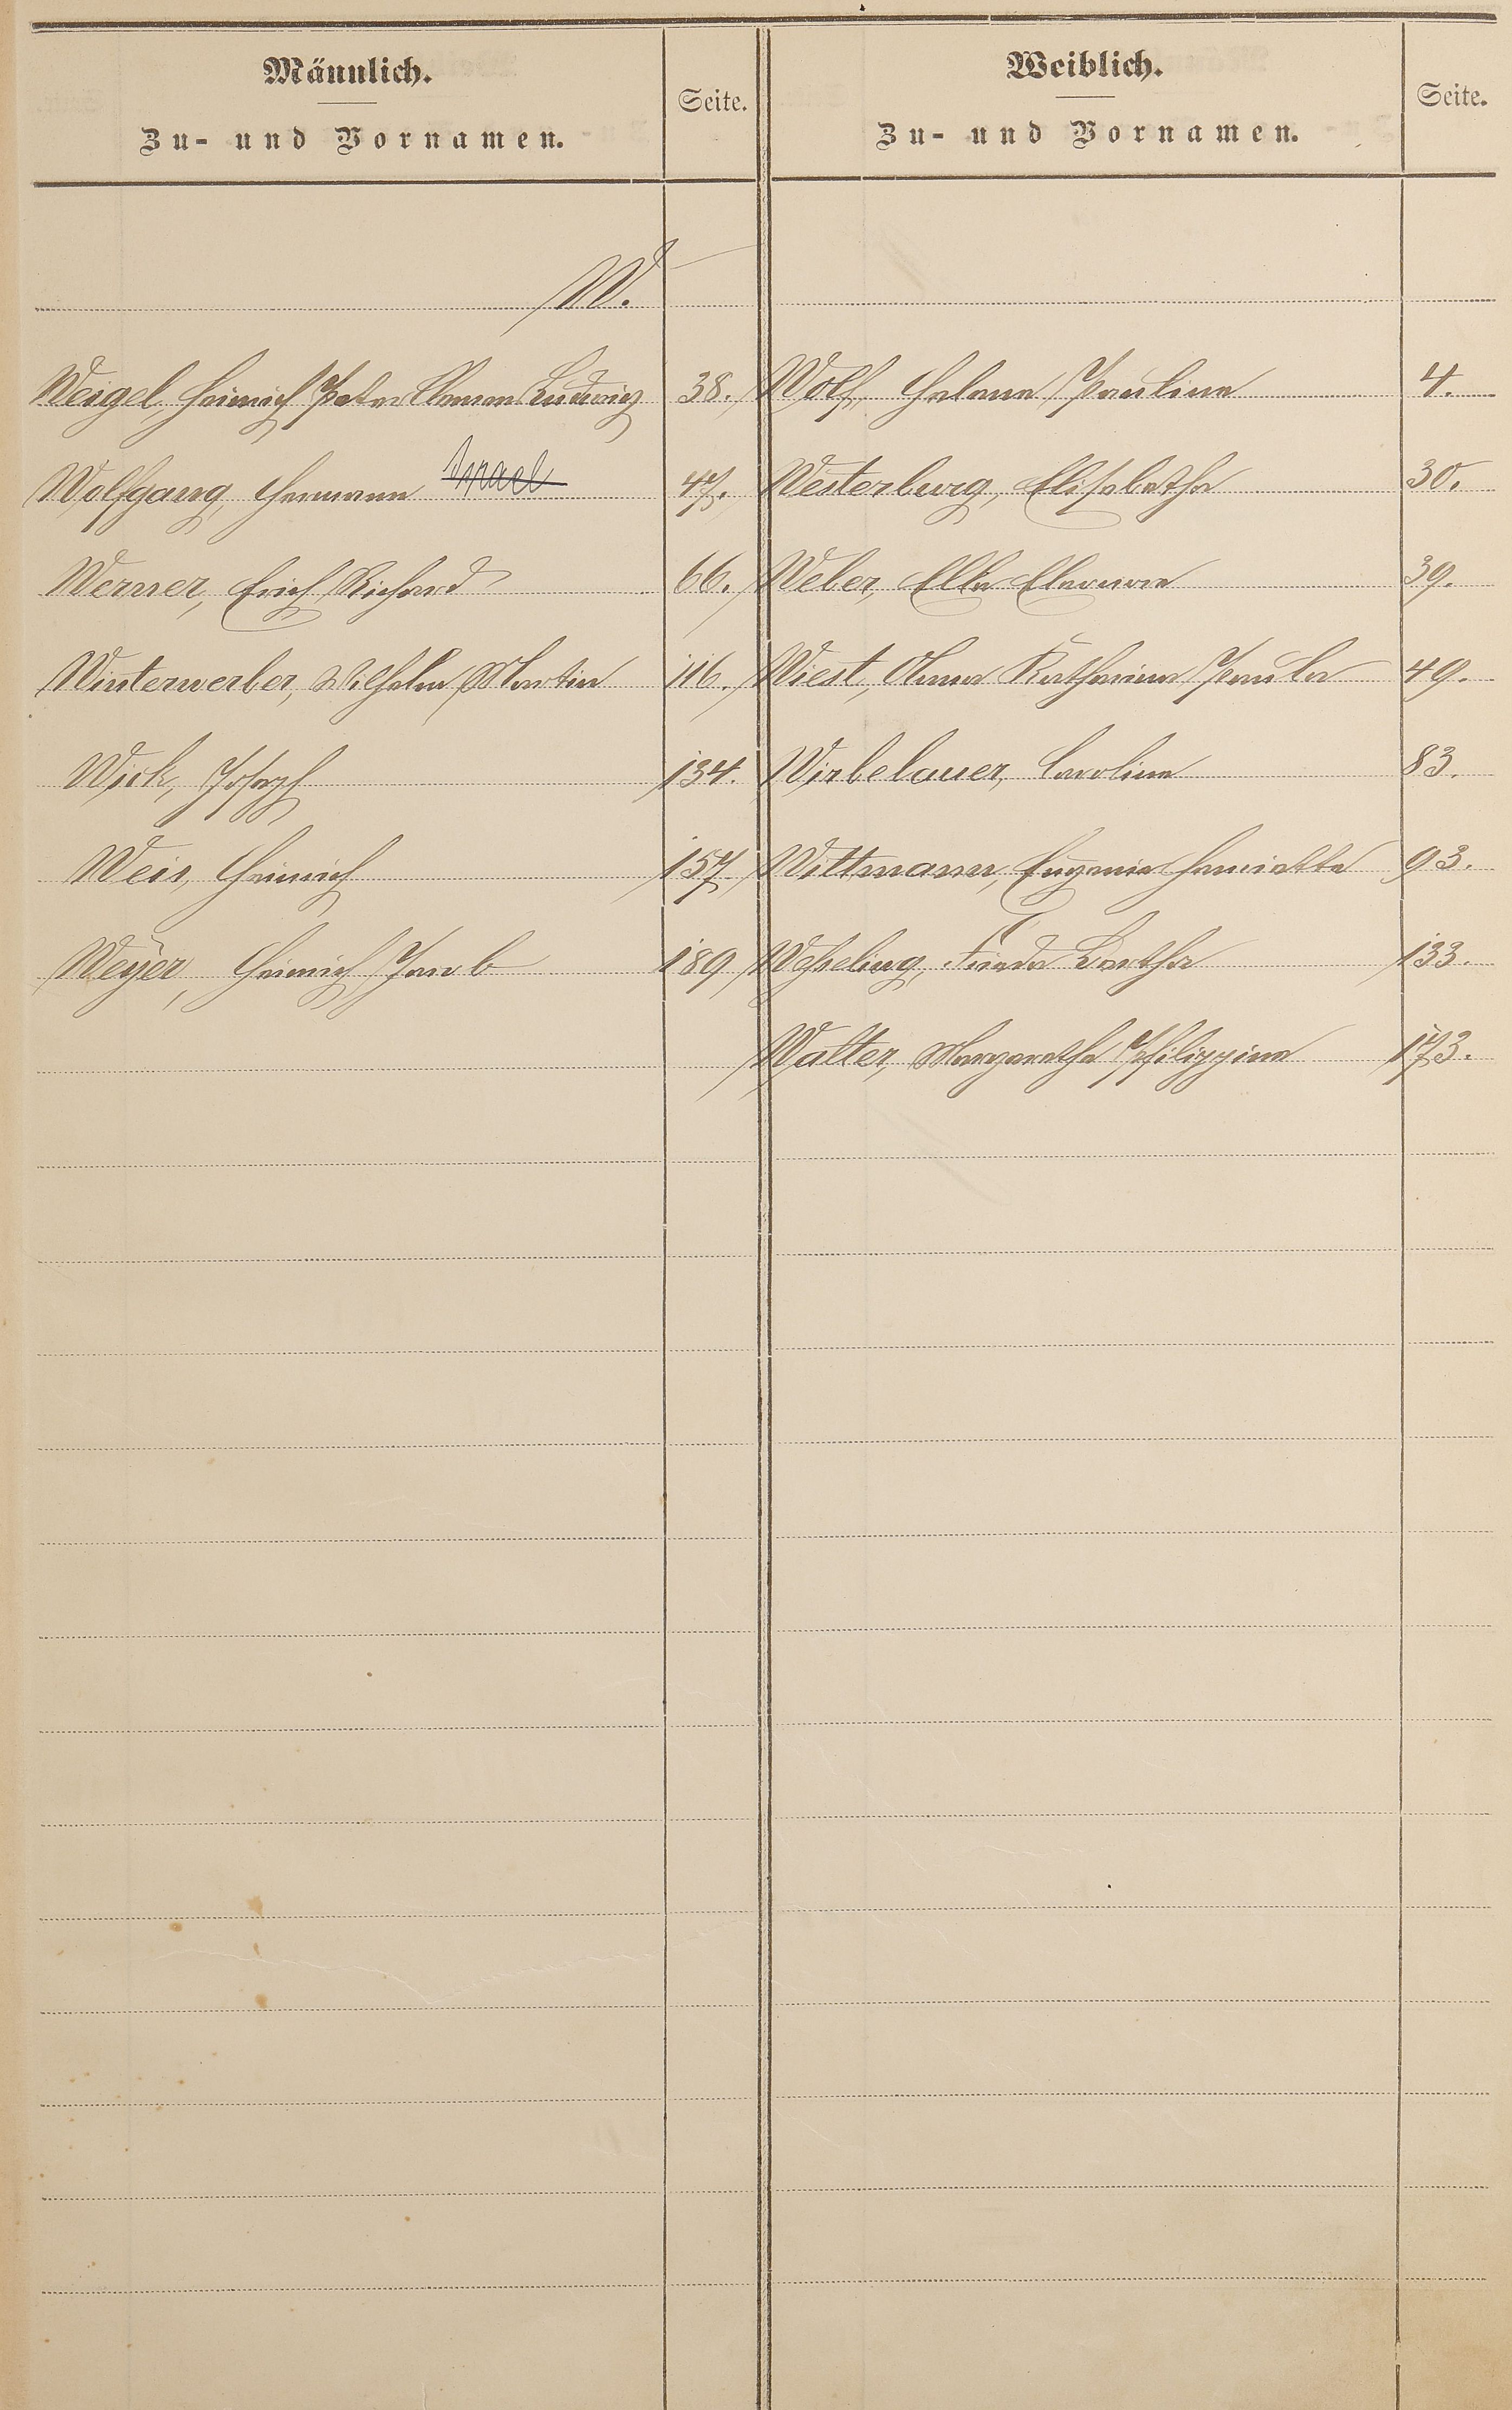 Männlich.
Zu- und Vornamen.
Seite.
Weiblich.
Zu- und Vornamen.
Seite.
W.
Weigel, Heinrich Peter Clemens Ludwig 38.
Wolfgang, Hermann Israel 47.
Werner, Erich Richard 66.
Winterwerber, Wilhelm Martin 116.
Wick, Joseph 134.
Weis, Heinrich 157.
Weyer, Heinrich Jacob 189
Wolf, Helene Pauline 4.
Westerburg, Elisabetha 30.
Weber, Ella Eleonore 39.
Wiest, Anna Katharina Paula 49.
Wirbelauer, Caroline 83.
Wittmann, Eugenie Henriette 93.
Weßeling, Frieda Bertha 133.
Walter, Margaretha Philippine 173.